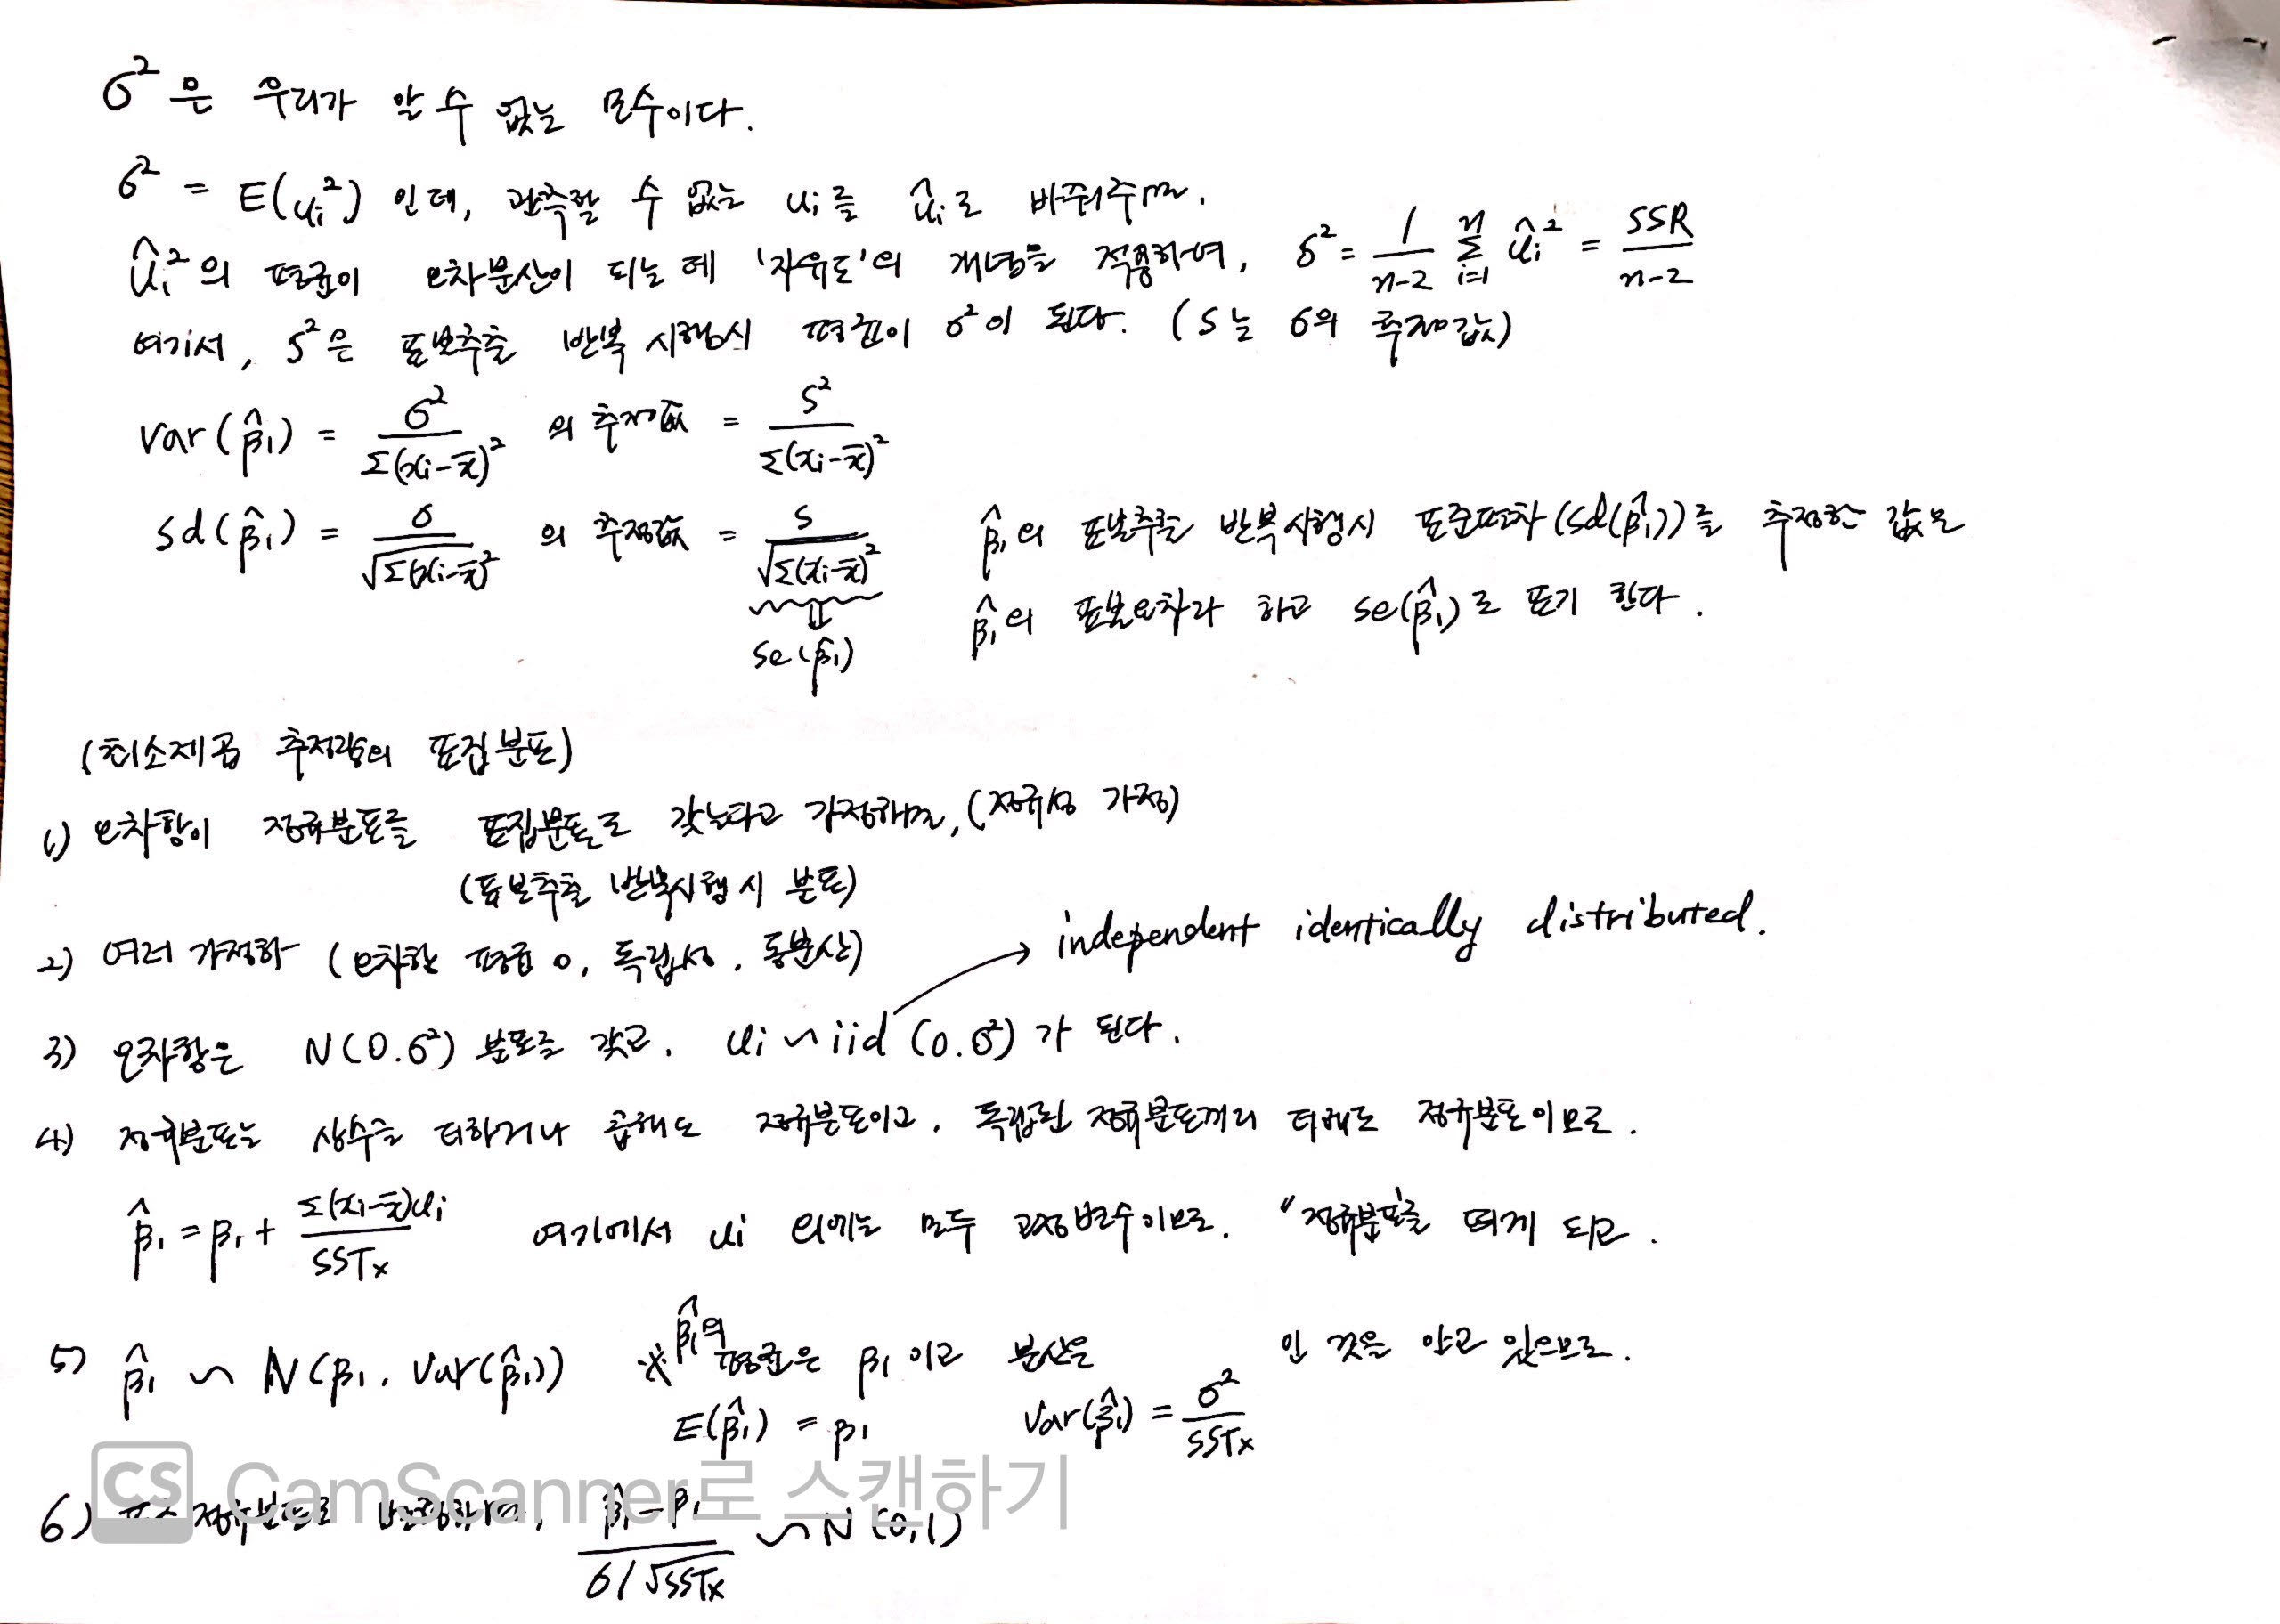 σ² 은 우리가 알 수 없는 모수이다.
σ² = E(uᵢ²) 인데, 관측할 수 없는 uᵢ를 ûᵢ로 바꿔주면,
ûᵢ²의 평균이 오차분산이 되는데 '자유도'의 개념을 적용하여, s² = 1/(n-2) Σ(i=1, n) ûᵢ² = SSR/(n-2)
여기서, s²은 표본추출 반복 시행시 평균이 σ²이 된다. (s는 σ의 추정값)
var(β̂₁) = σ²/Σ(xᵢ-x̄)² 의 추정값 = s²/Σ(xᵢ-x̄)²
sd(β̂₁) = σ/√Σ(xᵢ-x̄)² 의 추정값 = s/√Σ(xᵢ-x̄)²
se(β̂₁)
β̂₁의 표본추출 반복시행시 표준편차(sd(β̂₁))를 추정한 값은
β̂₁의 표본오차라 하고 se(β̂₁)로 표기 한다.
(최소제곱 추정량의 표집분포)
1) 오차항이 정규분포를 표집분포로 갖는다고 가정하면, (정규성 가정)
(표본추출 반복시행 시 분포)
2) 여러 가정하 (오차항 평균 0, 독립성, 동분산)
→ independent identically distributed.
3) 오차항은 N(0.σ²) 분포를 갖고, uᵢ ~ iid (0.σ²)가 된다.
4) 정규분포는 상수를 더하거나 곱해도 정규분포이고, 독립된 정규분포끼리 더해도 정규분포이므로.
β̂₁ = β₁ + Σ(xᵢ-x̄)uᵢ/SSTx 여기에서 uᵢ 외에는 모두 고정변수이므로, "정규분포를 띠게 되고.
5) β̂₁ ~ N(β₁, var(β̂₁)) ※ β̂₁의 평균은 β₁이고 분산은 인 것을 알고 있으므로.
E(β̂₁) = β₁ var(β̂₁) = σ²/SSTx
6) 표준정규분포로 변환하면, (β̂₁-β₁)/(σ/√SSTx) ~ N(0,1)
CS CamScanner로 스캔하기